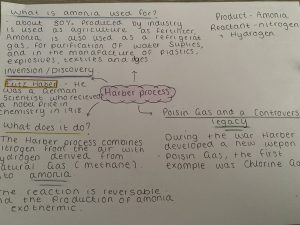 what is amonia used for?
about 80% produced by industry
is used as agriculture as fertilizer.
Amonia is also used as a refrigerat
gas, for purification of water suplies,
and in the manufacture of plastics,
explosives, textiles and dyes.
Product - Amonia
Reactant - nitrogen
+ Hydrogen
Invension / Discovery
Fritz Haber - He
was a German
scientist who recieved
a nobel Price in
chemistry in 1918.
Harber process
what does it do?
The Harber process combines
nitrogen from the air with
hydrogen derived from
natural gas (methane)
into amonia
The reaction is reversable
and the production of amonia
exothermic.
Poisin Gas and a Controvers
legacy
During the war Harber
developed a new wepon
- Poisin Gas, the first
example was Chlorine Ga